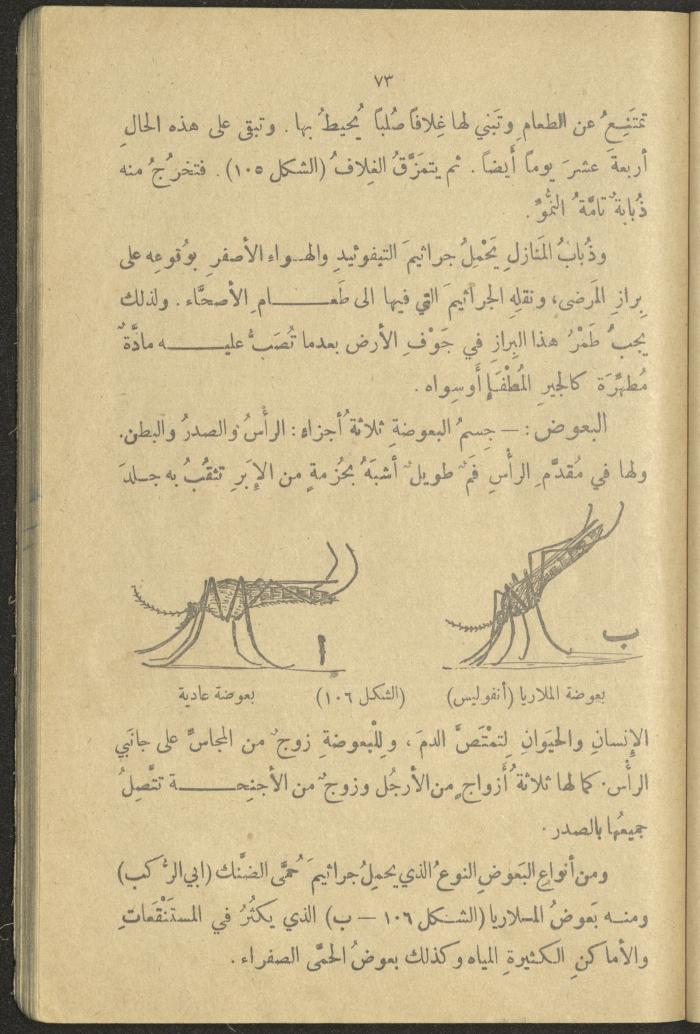 ٧٣
تمتَنِعُ عن الطعام وتَبني لها غِلافاً صُلباً يُحيطُ بها . وتبقى على هذه الحالِ
أربعةَ عشرَ يوماً أَيضاً . ثم يتمَزَّقُ الغِلافُ (الشكل ١٠٥) . فتخرُجُ منه
ذُبابةٌ تامَّةُ النموِّ .
وذُبابُ المَنازلِ يَحْمِلُ جراثيمَ التيفوئيدِ والهواء الأصفرِ بوُقوعِه على
بِرازِ المَرضى، ونقلِهِ الجراثيمَ التي فيها الى طَعـام الأصحَّاء . ولذلك
يجبُ طَمْرُ هذا البِرازِ في جَوْفِ الأرض بعدما تُصَبُّ عليـه مادَّةٌ
مُطهِّرَة كالجيرِ المُطْفَإِ أو سِواه .
البعوض : — جِسمُ البعوضةِ ثلاثةُ أجزاءٍ : الرأسُ والصدرُ والبطن .
ولها في مُقدَّمِ الرأْسِ فَمٌ طويلٌ أشبَهُ بحُزمةٍ من الإِبَرِ تثقُبُ به جـلدَ
ا
ب
بعوضة الملاريا (أنفوليس) (الشكل ١٠٦) بعوضة عادية
الإِنسانِ والحَيَوانِ لِتمْتَصَّ الدمَ ، ولِلْبعوضةِ زوجٌ من المجاسِّ على جانبَي
الرأْس . كما لها ثلاثةُ أَزواجٍ من الأرجُل وزوجٌ من الأجنِحـة تتَّصِلُ
جميعُها بالصدر .
ومن أنواعِ البَعوضِ النوعُ الذي يحمِلُ جراثيمَ حُمَّى الضَّنك (ابي الرُّكب)
ومنـه بَعوضُ المـلاريا (الشـكل ١٠٦ – ب) الذي يكثُرُ في المستَنْقَعاتِ
والأماكنِ الكثيرةِ المياه وكذلك بعوضُ الحمَّى الصفراء .